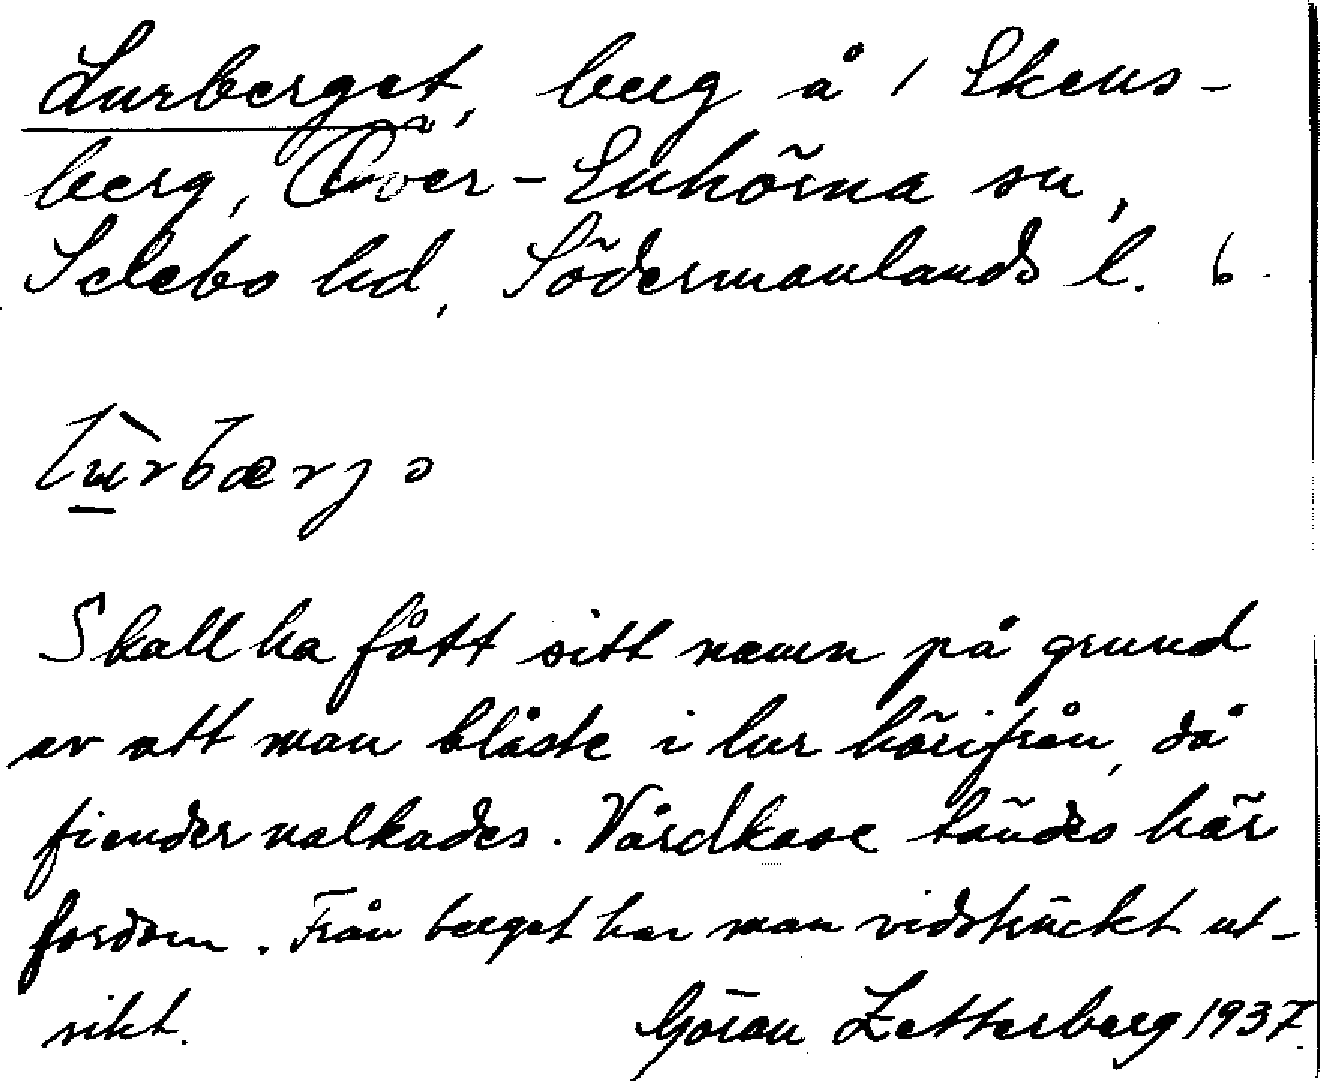 Lurberget, berg å 1 Ekens-
berg, Över-Enhörna sn,
Selebo hd, Södermanlands l. 6.
lùrbærjə
Skall ha fått sitt namn på grund
av att man blåste i lur härifrån, då
fiender nalkades. Vårdkase tändes här
fordom. Från berget har man vidsträckt ut-
sikt. Göran Zetterberg 1937.